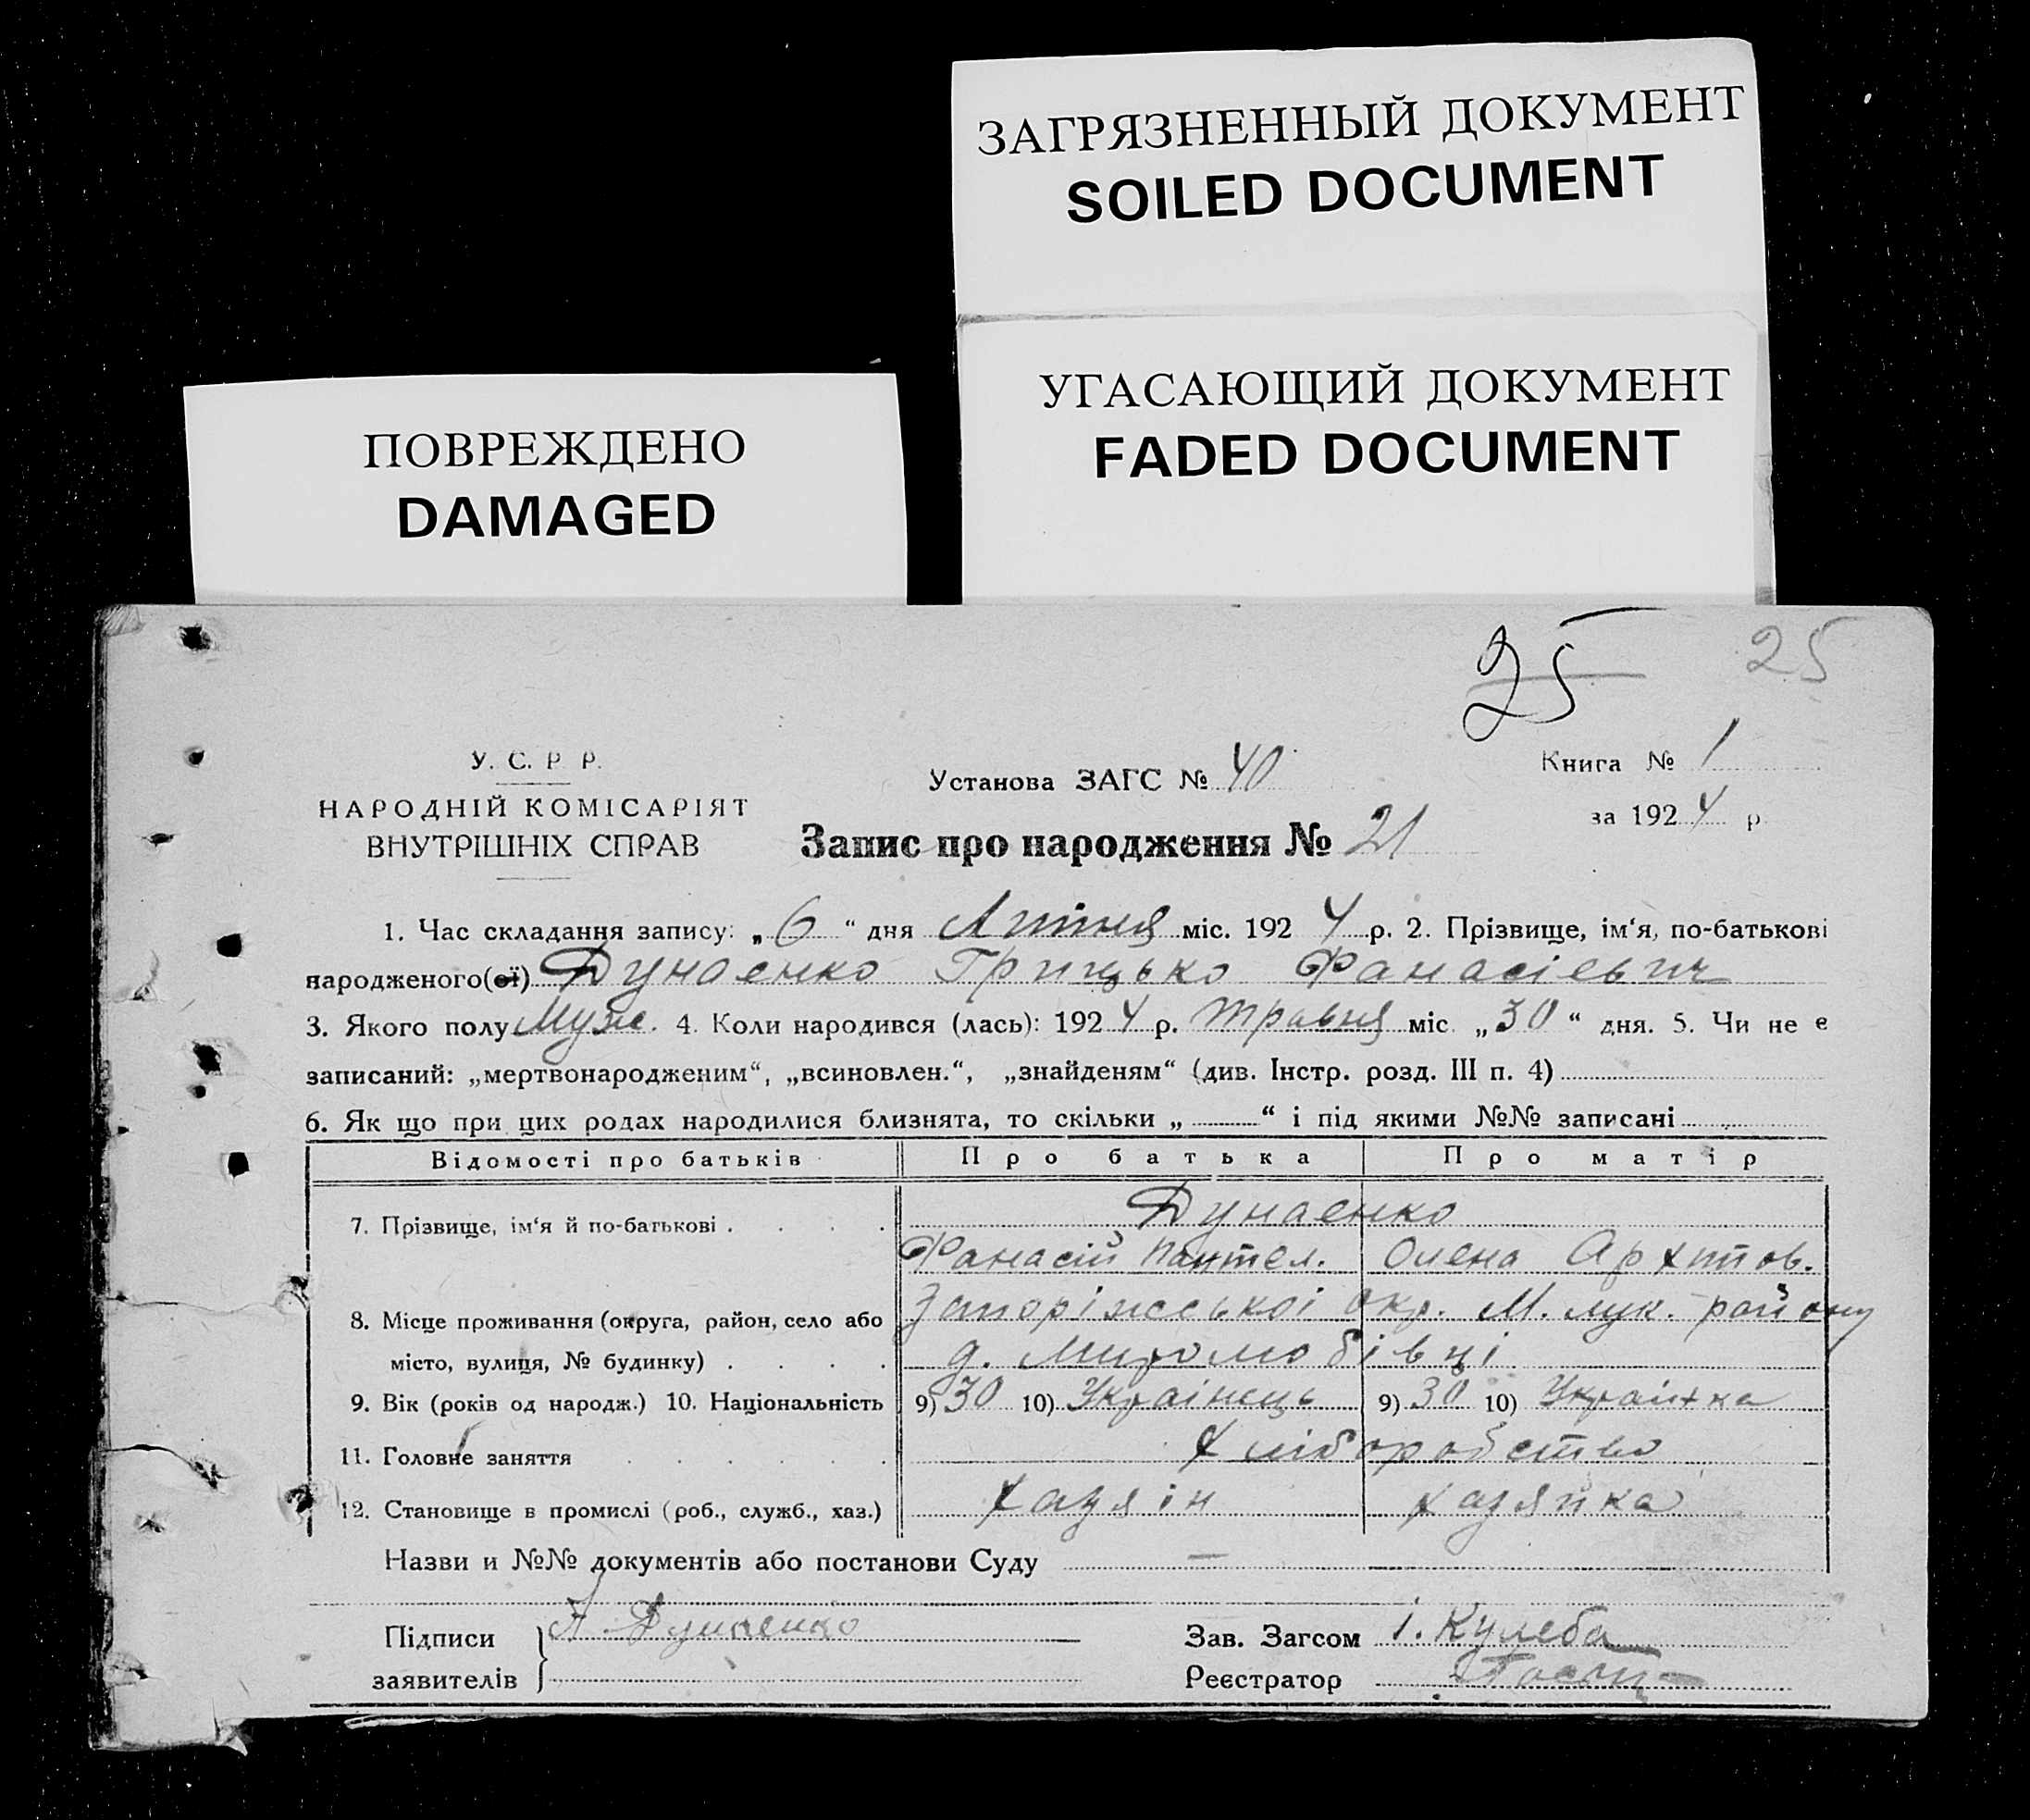 ЗАГРЯЗНЕННЫЙ ДОКУМЕНТ
SOILED DOCUMENT
УГАСАЮЩИЙ ДОКУМЕНТ
FADED DOCUMENT
ПОВРЕЖДЕНО
DAMAGED
25 25
У. С. Р Р.
НАРОДНІЙ КОМІСАРІЯТ
ВНУТРІШНІХ СПРАВ
Установа ЗАГС № 40
Книга № 1
за 1924 р
Запис про народження № 21
1. Час складання запису: „6“ дня Липня міс. 1924 р. 2. Прізвище, ім‘я, по-батькові
народженого(ої) Дунаенко Грицько Фанасієвич
3. Якого полу Муж. 4. Коли народився (лась): 1924 р. травня міс „30“ дня. 5. Чи не є
записаний: „мертвонародженим“, „всиновлен.“, „знайденям“ (див. Інстр. розд. III п. 4)
6. Як що при цих родах народилися близнята, то скільки „ “ і під якими №№ записані
Відомості про батьків Про батька Про матір
7. Прізвище, ім‘я й по-батькові Дунаенко
Фанасій Пантел. Олена Архипов.
8. Місце проживання (округа, район, село або Запоріжської окр. М. лук. району
місто, вулиця, № будинку) д.
9. Вік (років од народж.) 10. Національність 9) 30 10) Українець 9) 30 10) Українка
11. Головне заняття Хліборобство
12. Становище в промислі (роб., служб., хаз.) Хазяїн Хазяйка
Назви и №№ документів або постанови Суду —
Підписи Дунаенко Зав. Загсом І. Кулеба
заявителів Реєстратор